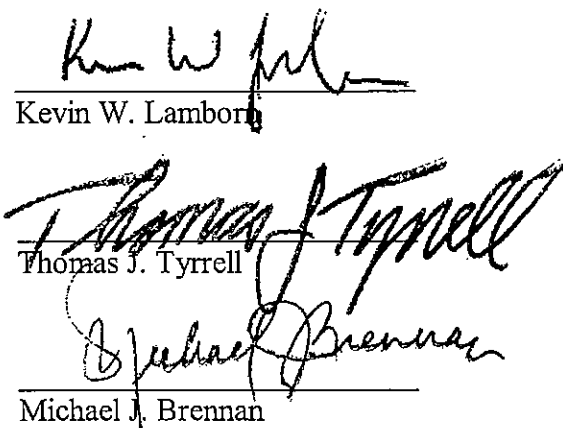 Kevin W. Lamborn
Thomas J Tyrrell
Thomas J. Tyrrell
Michael J Brennan
Michael J. Brennan